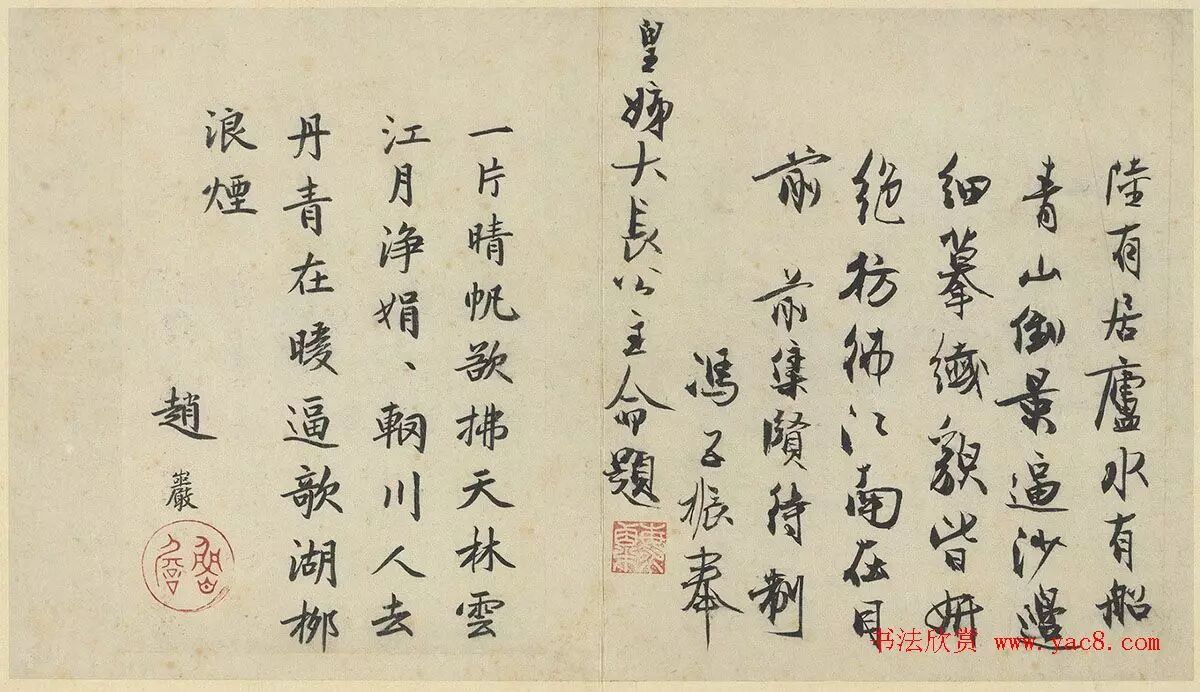 陸有居廬水有船
青山倒景逼沙邊
細摹纖貌皆妍
絶彷彿江南在目
前 前集賢待制
馮子振奉
皇姊大長公主命題
一片晴帆欲拂天林雲
江月浄娟、輞川人去
丹青在暖逼歌湖柳
浪煙
趙巖
书法欣赏 www.yac8.com